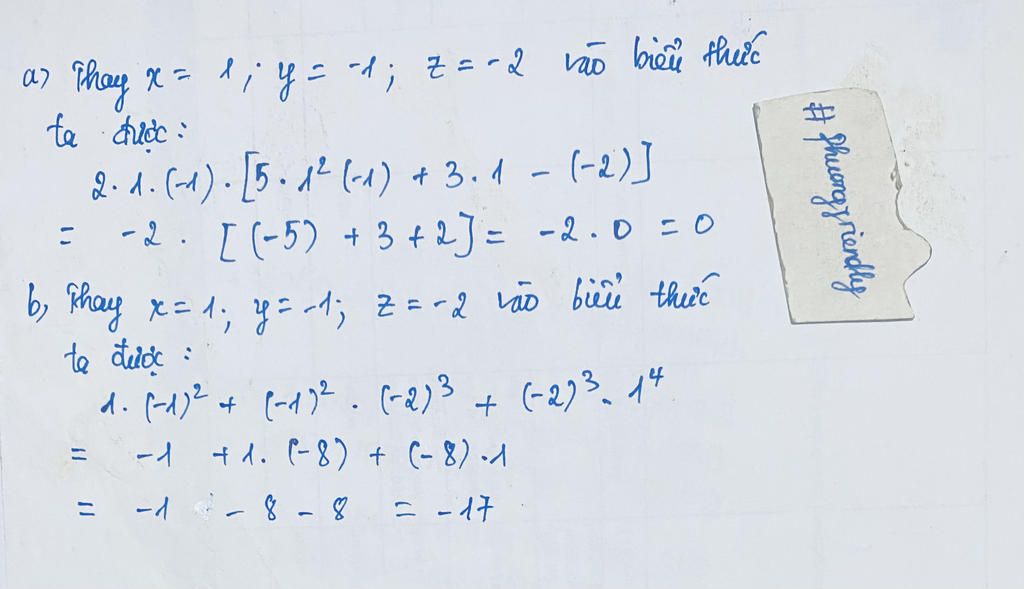 a) Thay x = 1; y = -1; z = -2 vào biểu thức
ta được:
2. 1. (-1) . [5 . 1² (-1) + 3. 1 - (-2)]
= -2 . [(-5) + 3 + 2] = -2. 0 = 0
b, Thay x = 1; y = -1; z = -2 vào biểu thức
ta được:
1. (-1)² + (-1)² . (-2)³ + (-2)³. 1⁴
= -1 + 1. (-8) + (-8) .1
= -1 - 8 - 8 = -17
#phuongfriendly